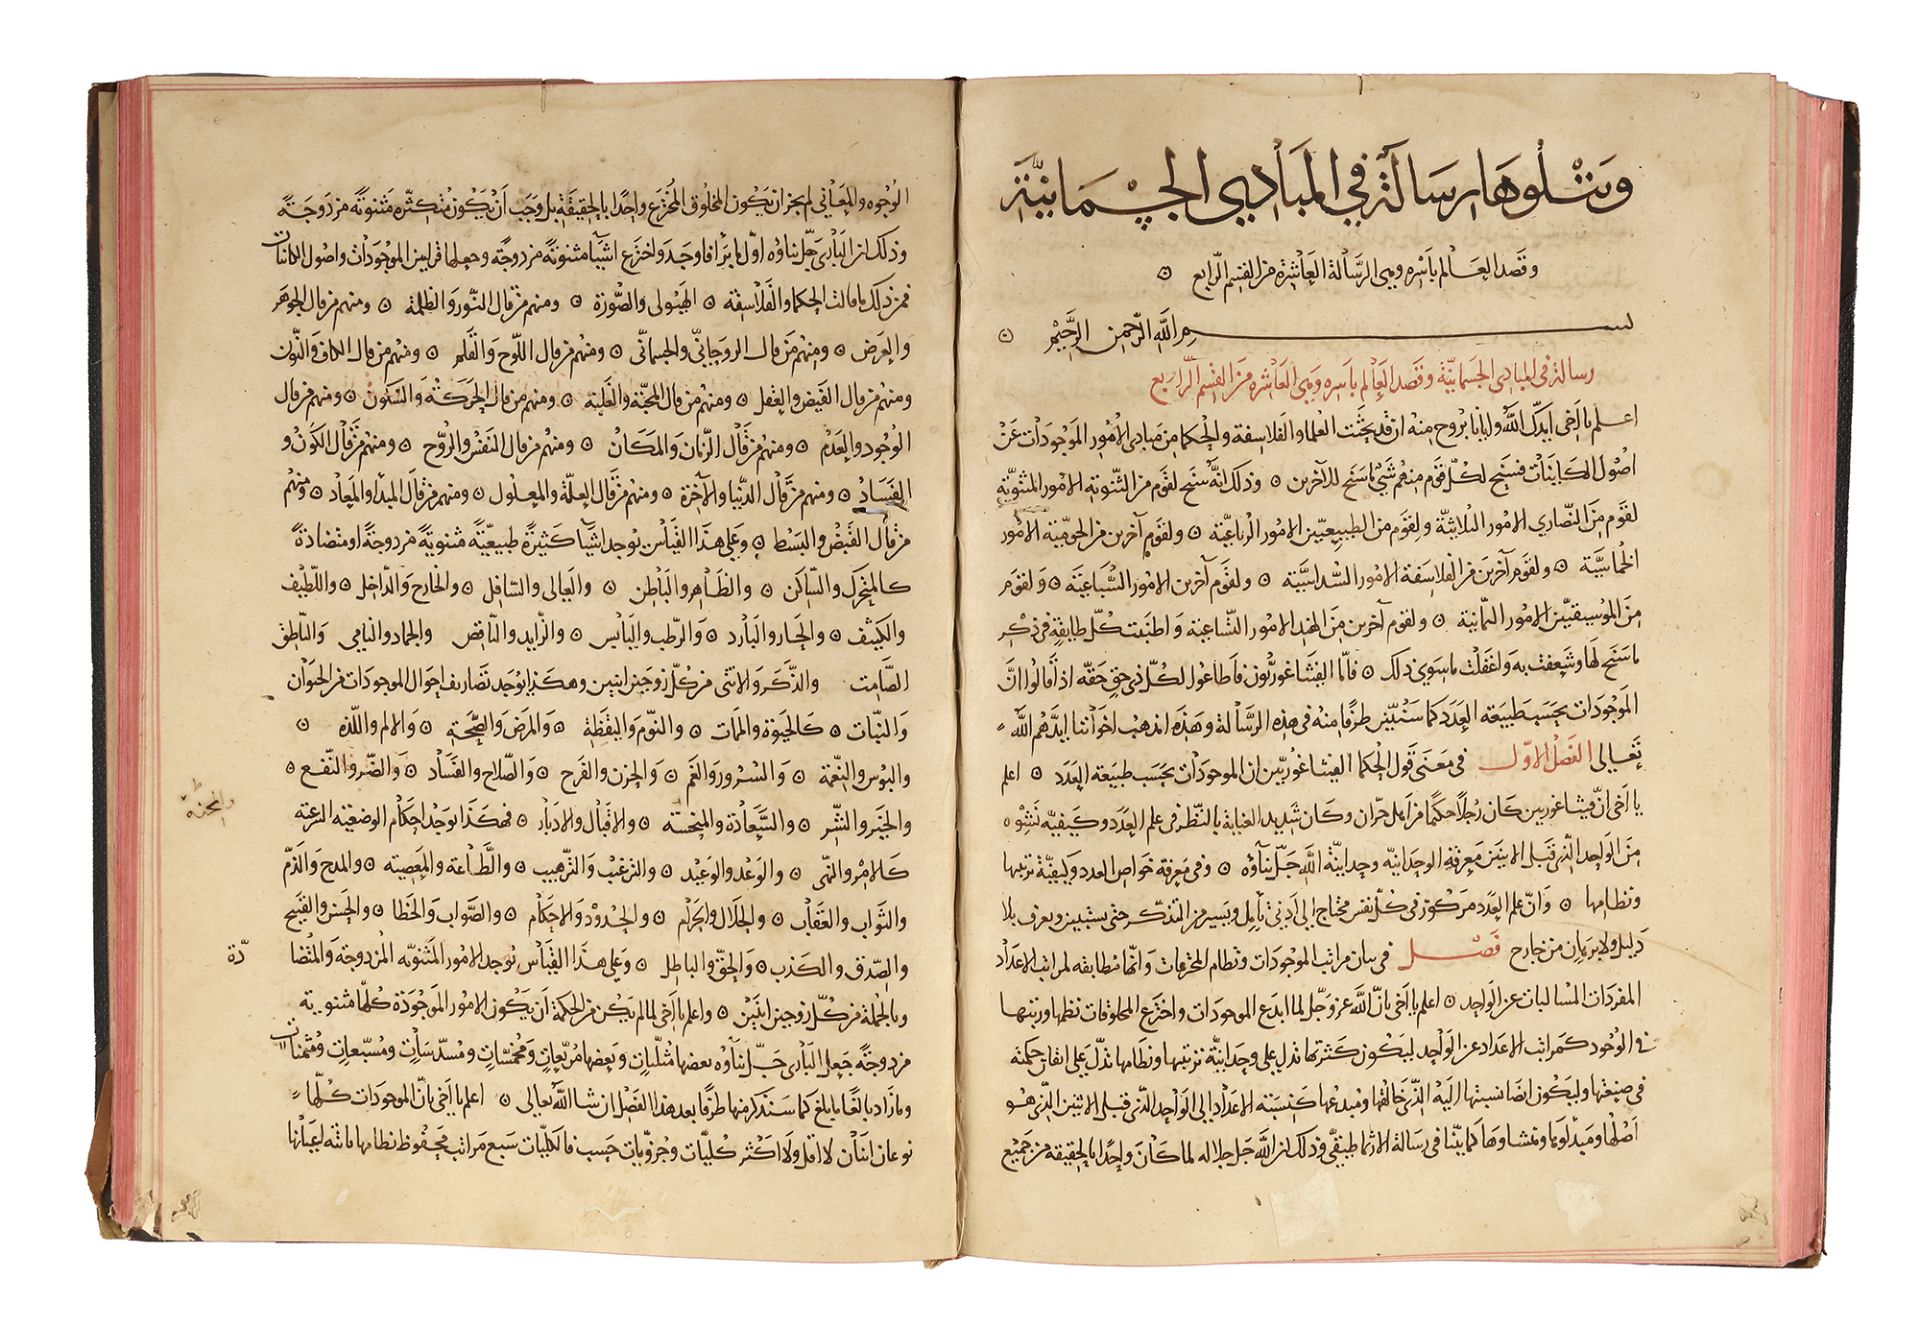 ويتلوها رسالة في المبادي الجسمانية
وقصد العالم باسره وهي الرسالة العاشرة من القسم الرابع ⊙
بسم الله الرحمن الرحيم ⊙
رسالة في المبادي الجسمانية وقصد العالم باسره وهي العاشرة من القسم الرابع
اعلم يا اخي ايدك الله وايانا بروح منه ان قد بحثت العلما والفلاسفة والحكما من مبادي الامور الموجودات عن
اصول الكاينات فسنح لكل قوم منهم شي ما سنح للآخرين ⊙ وذلك انه سنح لقوم من الثنوية الامور المثنوية
لقوم من النصاري الامور الثلاثية ولقوم من الطبيعيين الامور الرباعية ⊙ ولقوم آخرين من الخرمية الامور
الخماسية ⊙ ولقوم آخرين من الفلاسفة الامور السداسية ⊙ ولقوم آخرين الامور السباعية ⊙ ولقوم
من الموسيقيين الامور الثمانية ⊙ ولقوم آخرين من الهند الامور التساعية واطنبت كل طايفة في ذكر
ما سنح لها وشغفت به واغفلت ما سوي ذلك ⊙ فاما الفيثاغوريون فاطاعوا لكل ذي حق حقه اذ قالوا ان
الموجودات بحسب طبيعة العدد كما سنبين طرفا منه في هذه الرسالة وهذه مذهب اخواننا ايدهم الله
تعالي الفصل الاول في معني قول الحكما الفيثاغوريين ان الموجودات بحسب طبيعة العدد ⊙ اعلم
يا اخي ان فيثاغورس كان رجلا حكيما من اهل حران وكان شديد العناية بالنظر في علم العدد وكيفية نشوه
من الواحد الذي قبل الاثنين معرفة الوحدانية وحدانية الله جل ثناؤه ⊙ وفي معرفة خواص العدد وكيفية ترتيبها
ونظامها ⊙ وان علم العدد مركوز في كل نفس محتاج الي ادني تامل ويسير من التذكر حتي يستبين ويعرف بلا
دليل ولا برهان من خارج فصل في بيان مراتب الموجودات ونظام المخترعات وانها مطابقة لمراتب الاعداد
المفردات عن الواحد ⊙ اعلم يا اخي بان الله عز وجل لما ابدع الموجودات واخترع المخلوقات نظمها ورتبها
في الوجود كمراتب الاعداد عن الواحد ليكون كثرتها تدل علي وحدانية ترتيبها ونظامها تدل علي اتقان حكمته
في صنعتها وليكون ايضا نسبتها اليه الذي خالقها ومبدعها كنسبة الاعداد الي الواحد الذي قبل الاثنين الذي هو
اصلها ومبداوها ومنشاوها كما بينا في رسالة الارثماطيقي وذلك ان الله جل جلاله لما كان واحدا بالحقيقة من جميع
الوجوه والمعاني لم يجز ان يكون المخلوق المخترع واحدا بالحقيقة بل وجب ان يكون متكثره مثنوية مزدوجة
وذلك ان الباري جل ثناوه اول ما برا فاوجد واخترع اشيا مثنوية مزدوجة وجعلها قوانين الموجودات واصول الكائنات
فمن ذلك ما قالت الحكما والفلاسفة ⊙ الهيولي والصورة ⊙ ومنهم من قال النور والظلمة ⊙ ومنهم من قال الجوهر
والعرض ⊙ ومنهم من قال الروحاني والجسماني ⊙ ومنهم من قال اللوح والقلم ⊙ ومنهم من قال الكاف والنون
ومنهم من قال الفيض والعقل ⊙ ومنهم من قال المحبة والغلبة ⊙ ومنهم من قال الحركة والسكون ⊙ ومنهم من قال
الوجود والعدم ⊙ ومنهم من قال الزمان والمكان ⊙ ومنهم من قال النفس والروح ⊙ ومنهم من قال الكون و
الفساد ⊙ ومنهم من قال الدنيا والآخرة ⊙ ومنهم من قال العلة والمعلول ⊙ ومنهم من قال المبدا والمعاد ⊙ ومنهم
من قال القبض والبسط ⊙ وعلي هذا القياس يوجد اشيا كثيرة طبيعية مثنوية مزدوجة او متضادة
كالمتحرك والساكن ⊙ والظاهر والباطن ⊙ والعالي والسافل ⊙ والخارج والداخل ⊙ واللطيف
والكثيف ⊙ والحار والبارد ⊙ والرطب واليابس ⊙ والزايد والناقص والجماد والنامي والناطق
الصامت والذكر والانثي من كل زوجين اثنين وهكذا يوجد تصاريف احوال الموجودات من الحيوان
والنبات ⊙ كالحيوة والممات ⊙ والنوم واليقظة ⊙ والمرض والصحة ⊙ والالم واللذه ⊙
والبوس والنعمة ⊙ والسرور والغم ⊙ والحزن والفرح ⊙ والصلاح والفساد ⊙ والضر والنفع ⊙
والخير والشر ⊙ والسعادة والمنحسة ⊙ والاقبال والادبار ⊙ فهكذا يوجد احكام الوضعية الشرعية
كالامر والنهي ⊙ والوعد والوعيد ⊙ والترغيب والترهيب ⊙ والطاعة والمعصية ⊙ والمدح والذم
والثواب والعقاب ⊙ والحلال والحرام ⊙ والحدود والاحكام ⊙ والصواب والخطا ⊙ والحسن والقبيح
والصدق والكذب ⊙ والحق والباطل ⊙ وعلي هذا القياس توجد الامور المثنوية المزدوجة والمتضا دة
وبالجملة من كل زوجين اثنين ⊙ واعلم يا اخي لما لم يكن من الحكمة ان يكون الامور الموجودة كلها مثنوية
مزدوجة جعل الباري جل ثناوه بعضها مثلثات وبعضها مربعات ومخمسات ومسدسات ومسبعات ومثمنات
وما زاد بالغا ما بلغ كما سنذكر منها طرفا بعد هذا الفصل ان شا الله تعالي ⊙ اعلم يا اخي بان الموجودات كلها
نوعان اثنان لا اقل ولا اكثر كليات وجزويات حسب فالكليات سبع مراتب محفوظ نظامها ثابتة اعيانها